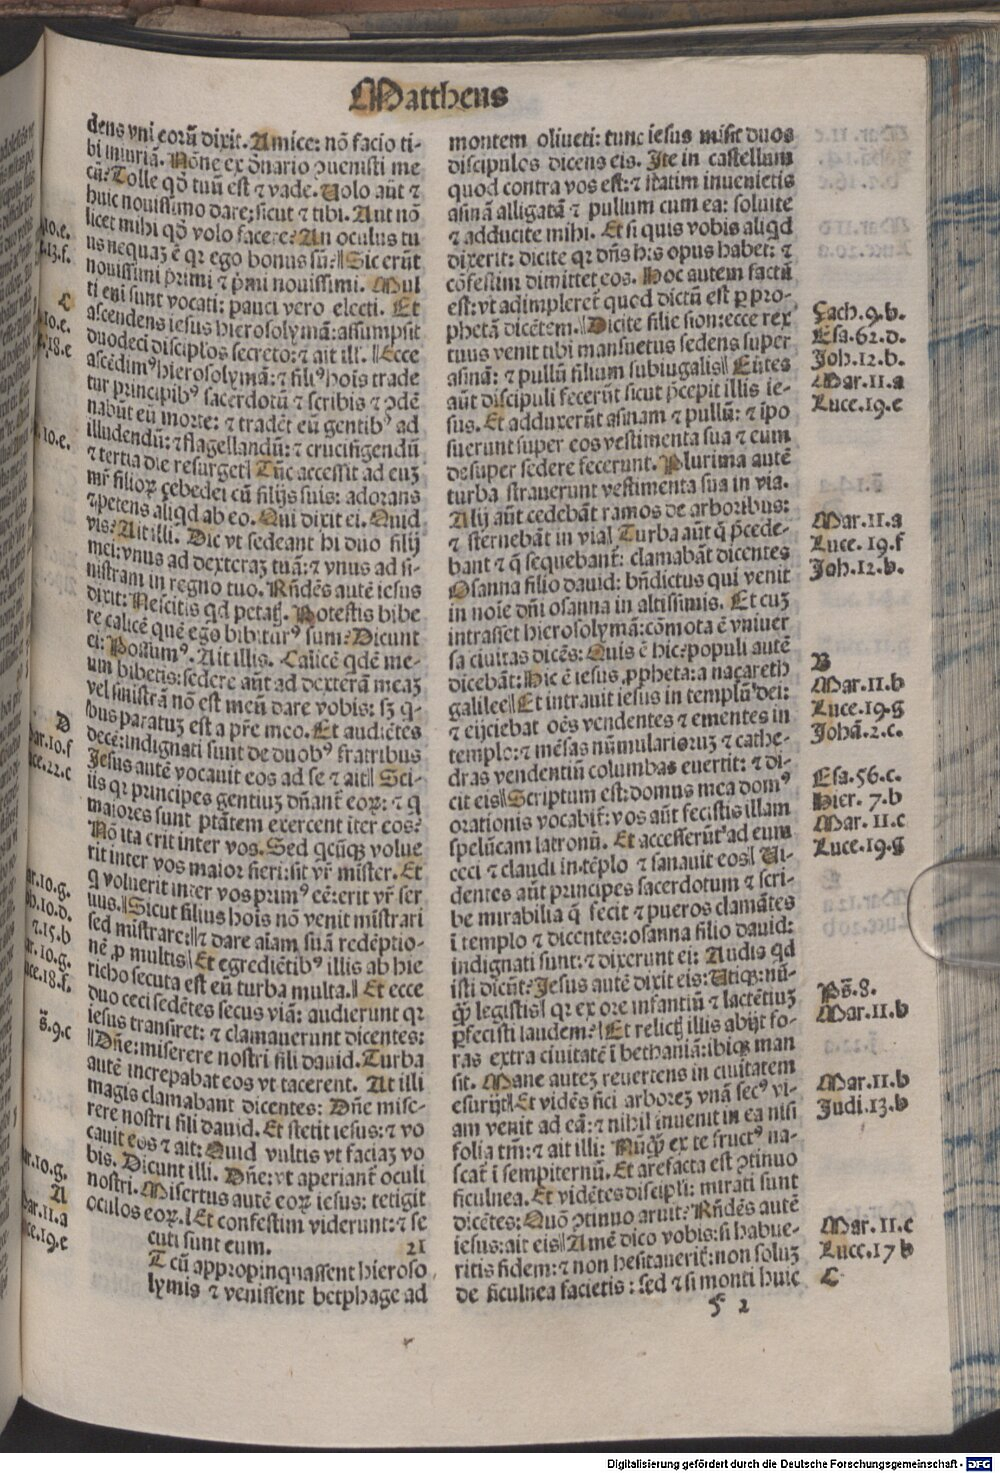 Mattheus
dens vni eorũ dixit. Amice: nõ facio ti-
bi iniuriã. Nõne ex dñario ꝯuenisti me
cũ? Tolle qđ tuũ est ⁊ vade. Uolo aũt ⁊
huic nouissimo dare; sicut ⁊ tibi. Aut nõ
licet mihi qđ volo facere? An oculus tu
us nequaꝫ ē qꝛ ego bonus sũ? Sic erũt
nouissimi primi ⁊ pͥmi nouissimi. Mul
ti eni sunt vocati: pauci vero electi. Et
ascendens iesus hierosolymã: assumpsit
duodeci disciplos secreto: ⁊ ait ill. Ecce
ascẽdimꝰ hierosolymã: ⁊ filiꝰ hois trade
tur principibꝰ sacerdotũ ⁊ scribis ⁊ ꝯdẽ
nabũt eũ morte: ⁊ tradẽt eũ gentibꝰ ad
illudendũ: ⁊ flagellandũ: ⁊ crucifigendũ
⁊ tertia die resurget Tũc accessit ad euꝫ
mr̃ filioꝝ çebedei cũ filijs suis: adorans
⁊ petens aliqd ab eo. Qui dixit ei. Quid
vis? Ait illi. Dic vt sedeant hi duo filij
mei: vnus ad dexteraꝫ tuã: ⁊ vnus ad si-
nistram in regno tuo. Rñdẽs autẽ iesus
dixit: Nescitis qd petatꝭ. Potestis bibe
re calicẽ quẽ ego bibiturꝰ sum? Dicunt
ei: Possumꝰ. Ait illis. Calicẽ qdẽ me-
um bibetis: sedere aũt ad dexterã meaꝫ
vel sinistrã nõ est meũ dare vobis: sꝫ q-
bus paratuꝫ est a pr̃e meo. Et audiẽtes
decẽ: indignati sunt de duobꝰ fratribus
Jesus autẽ vocauit eos ad se ⁊ ait Sci-
tis qꝛ principes gentiuꝫ dñant̃ eoꝝ: ⁊ q
maiores sunt ptãtem exercent iter eos?
Nõ ita erit inter vos. Sed qcũqꝫ volue
rit inter vos maior fieri: sit vr̃ mister. Et
q voluerit inter vos primꝰ eẽ: erit vr̃ ser
uus. Sicut filius hois nõ venit mĩstrari
sed mĩstrare: ⁊ dare aiam suã redẽptio-
nẽ ꝓ multis Et egrediẽtibꝰ illis ab hie
richo secuta est eũ turba multa. Et ecce
duo ceci sedẽtes secus viã: audierunt qꝛ
iesus transiret: ⁊ clamauerunt dicentes:
Dñe: miserere nostri fili dauid. Turba
autẽ increpabat eos vt tacerent. At illi
magis clamabant dicentes: Dñe mise-
rere nostri fili dauid. Et stetit iesus: ⁊ vo
cauit eos ⁊ ait: Quid vultis vt faciaꝫ vo
bis. Dicunt illi. Dñe: vt aperiant̃ oculi
nostri. Misertus autẽ eoꝝ iesus: tetigit
oculos eoꝝ. Et confestim viderunt: ⁊ se
cuti sunt eum. 21
T cũ appropinquassent hieroso
lymis ⁊ venissent betphage ad
montem oliueti: tunc iesus misit duos
discipulos dicens eis. Ite in castellum
quod contra vos est: ⁊ statim inuenietis
asinã alligatã ⁊ pullum cum ea: soluite
⁊ adducite mihi. Et si quis vobis aliqd
dixerit: dicite qꝛ dñs his opus habet: ⁊
cõfestim dimittet eos. Hoc autem factũ
est: vt adimpleret̃ quod dictũ est ꝑ pro-
phetã dicẽtem. Dicite filie sion: ecce rex
tuus venit tibi mansuetus sedens super
asinã: ⁊ pullũ filium subiugalis Eũtes
aũt discipuli fecerũt sicut p̃cepit illis ie-
sus. Et adduxerũt asinam ⁊ pullũ: ⁊ ipo
suerunt super eos vestimenta sua ⁊ eum
desuper sedere fecerunt. Plurima autẽ
turba strauerunt vestimenta sua in via.
Alij aũt cedebãt ramos de arboribus:
⁊ sternebãt in via Turba aũt q̃ p̃cede-
bant ⁊ q̃ sequebant̃: clamabãt dicentes
Osanna filio dauid: bñdictus qui venit
in noie dñi osanna in altissimis. Et cuꝫ
intrasset hierosolymã: cõmota ẽ vniuer
sa ciuitas dicẽs: Quis ẽ hic? populi autẽ
dicebãt: Hic ẽ iesus ꝓpheta: a naçareth
galilee Et intrauit iesus in templũ dei:
⁊ eijciebat oẽs vendentes ⁊ ementes in
templo: ⁊ mẽsas nũmularioruꝫ ⁊ cathe-
dras vendentiũ columbas euertit: ⁊ di-
cit eis Scriptum est: domus mea domꝰ
orationis vocabit̃: vos aũt fecistis illam
spelũcam latronũ. Et accesserũt ad eum
ceci ⁊ claudi in tẽplo ⁊ sanauit eos Ui-
dentes aũt principes sacerdotum ⁊ scri-
be mirabilia q̃ fecit ⁊ pueros clamãtes
ĩ templo ⁊ dicentes: osanna filio dauid:
indignati sunt: ⁊ dixerunt ei: Audis qd
isti dicũt? Jesus autẽ dixit eis: Utiqꝫ: nũ-
q̃ legistis qꝛ ex ore infantiũ ⁊ lactẽtiuꝫ
ꝑfecisti laudem? Et relictꝭ illis abijt fo-
ras extra ciuitatẽ ĩ bethaniã: ibiqꝫ man
sit. Mane auteꝫ reuertens in ciuitatem
esurijt Et vidẽs fici arboreꝫ vnã secꝰ vi-
am venit ad eã: ⁊ nihil inuenit in ea nisi
folia tm̃: ⁊ ait illi: Nũq̃ ex te fructꝰ na-
scat̃ ĩ sempiternũ. Et arefacta est ꝯtinuo
ficulnea. Et vidẽtes discipli: mirati sunt
dicẽtes: Quõ ꝯtinuo aruit? Rñdẽs autẽ
iesus: ait eis Amẽ dico vobis: si habue-
ritis fidem: ⁊ non hesitauerit̃: non soluꝫ
de ficulnea facietis: sed ⁊ si monti huic
5 2
Çach. 9. b.
Esa. 62. d.
Joh. 12. b.
Mar. 11. a
Luce. 19. e
Mar. 11. a
Luce. 19. f
Joh. 12. b.
B
Mar. 11. b
Luce. 19. g
Johã. 2. c.
Esa. 56. c.
Hier. 7. b
Mar. 11. c
Luce. 19. g
Ps̃. 8.
Mar. 11. b
Mar. 11. b
Judi. 13. b
Mar. 11. c
Luce. 17 b
C
Digitalisierung gefördert durch die Deutsche Forschungsgemeinschaft - DFG